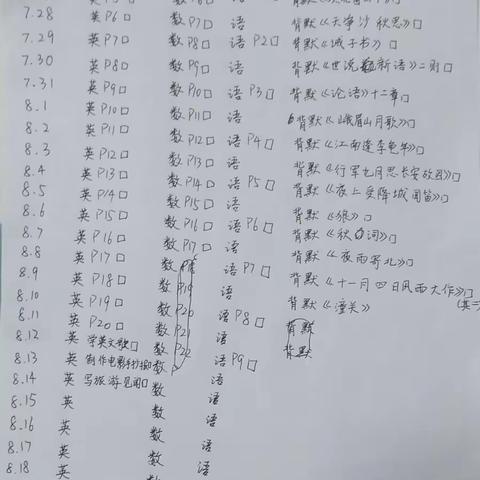 7.28 英 P6□ 数 P7□ 语 背默《天净沙 秋思》□
7.29 英 P7□ 数 P8□ 语 P2□ 背默《诫子书》□
7.30 英 P8□ 数 P9□ 语 背默《世说新语》二则□
7.31 英 P9□ 数 P10□ 语 P3□ 背默《论语》十二章□
8.1 英 P10□ 数 P11□ 语 背默《峨眉山月歌》□
8.2 英 P11□ 数 P12□ 语 P4□ 背默《江南逢李龟年》□
8.3 英 P12□ 数 P13□ 语 背默《行军九月思长安故园》□
8.4 英 P13□ 数 P14□ 语 P5□ 背默《夜上受降城闻笛》□
8.5 英 P14□ 数 P15□ 语 背默《狼》□
8.6 英 P15□ 数 P16□ 语 P6□ 背默《秋词》□
8.7 英 P16□ 数 P17□ 语 背默《夜雨寄北》□
8.8 英 P17□ 数 P18 语 P7□ 背默《十一月四日风雨大作》□
8.9 英 P18□ 数 P19 语 背默《潼关》□
8.10 英 P19□ 数 P20 语 P8□ 背默
8.11 英 P20□ 数 P21 语 背默
8.12 英 学英文歌□ 数 P22 语 P9□
8.13 英 制作电影手抄报□ 数 P 语
8.14 英 写旅游见闻□ 数 语
8.15 英 数 语
8.16 英 数 语
8.17 英 数 语
8.18 英 数 语